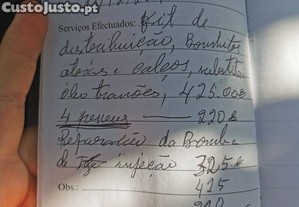 CustoJusto.pt
Serviços Efectuados: Kit de
distribuição, Bombitos
atrás e calços, substitui
óleo travões, 425.00€
4 pneus — 220€
Reparação da Bomba
de injeção 325€
Obs.: 425
220